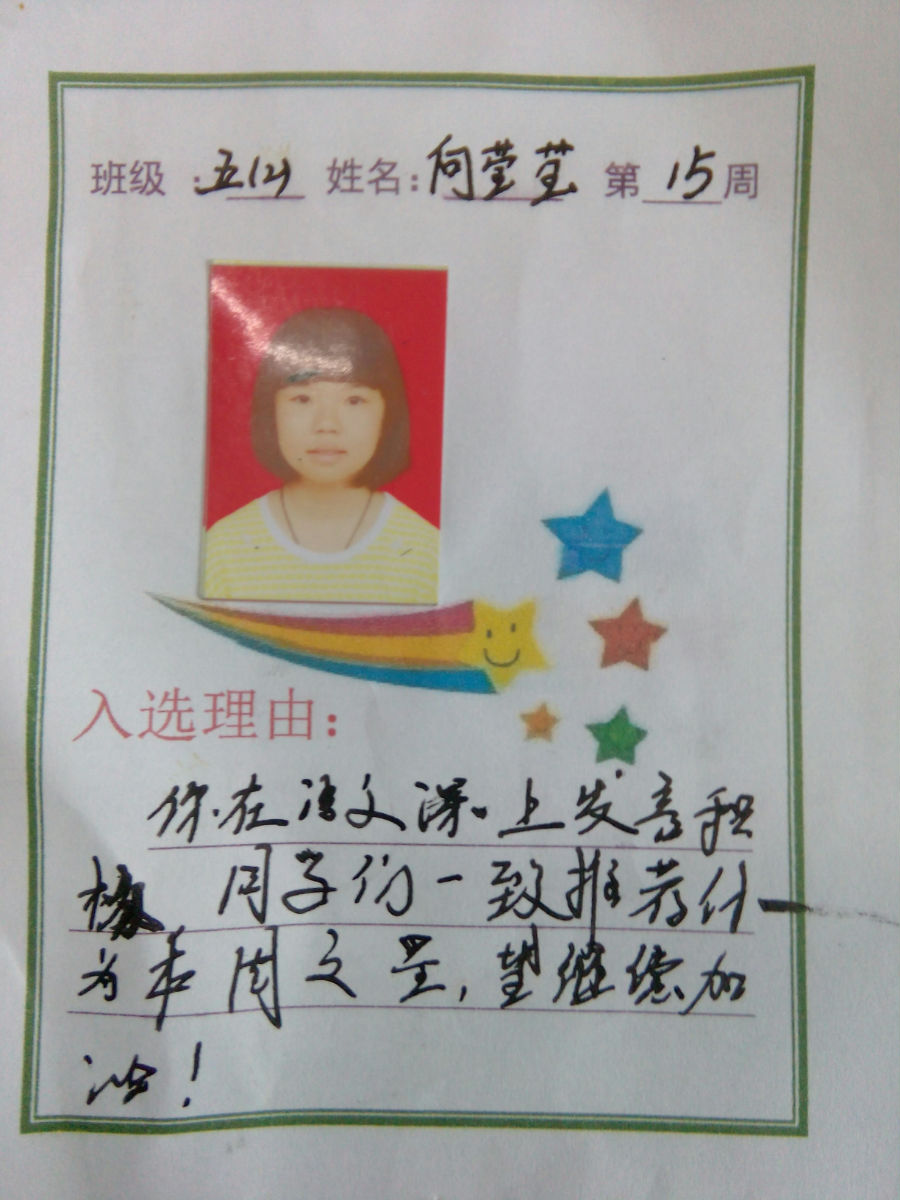 班级：五(2) 姓名：向莹莹 第 15 周
入选理由：
你在语文课上发言积
极，同学们一致推荐你
为本周文星，望继续加
油！